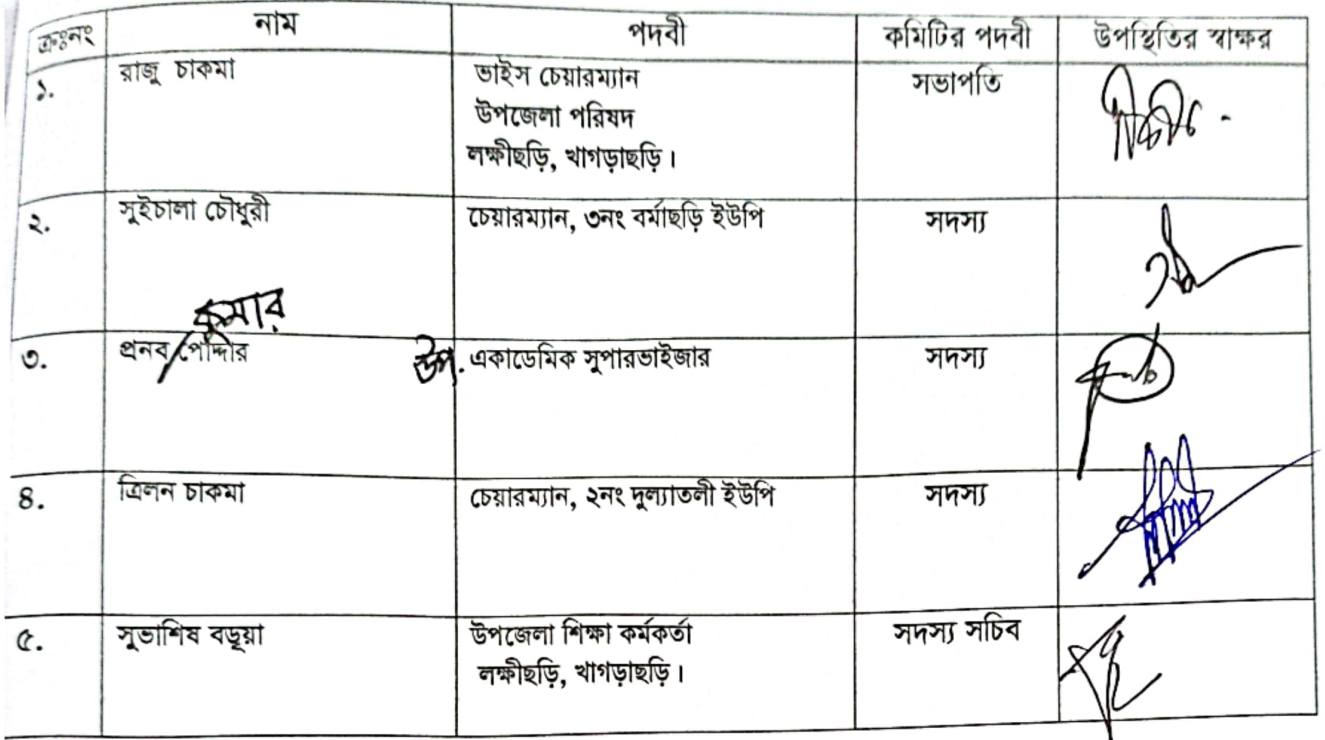 ক্রঃনং নাম পদবী কমিটির পদবী উপস্থিতির স্বাক্ষর
১. রাজু চাকমা ভাইস চেয়ারম্যান সভাপতি
উপজেলা পরিষদ
লক্ষীছড়ি, খাগড়াছড়ি।
২. সুইচালা চৌধুরী চেয়ারম্যান, ৩নং বর্মাছড়ি ইউপি সদস্য
কুমার
৩. প্রনব পোদ্দার উপ. একাডেমিক সুপারভাইজার সদস্য
৪. ত্রিলন চাকমা চেয়ারম্যান, ২নং দুল্যাতলী ইউপি সদস্য
৫. সুভাশিষ বড়ূয়া উপজেলা শিক্ষা কর্মকর্তা সদস্য সচিব
লক্ষীছড়ি, খাগড়াছড়ি।